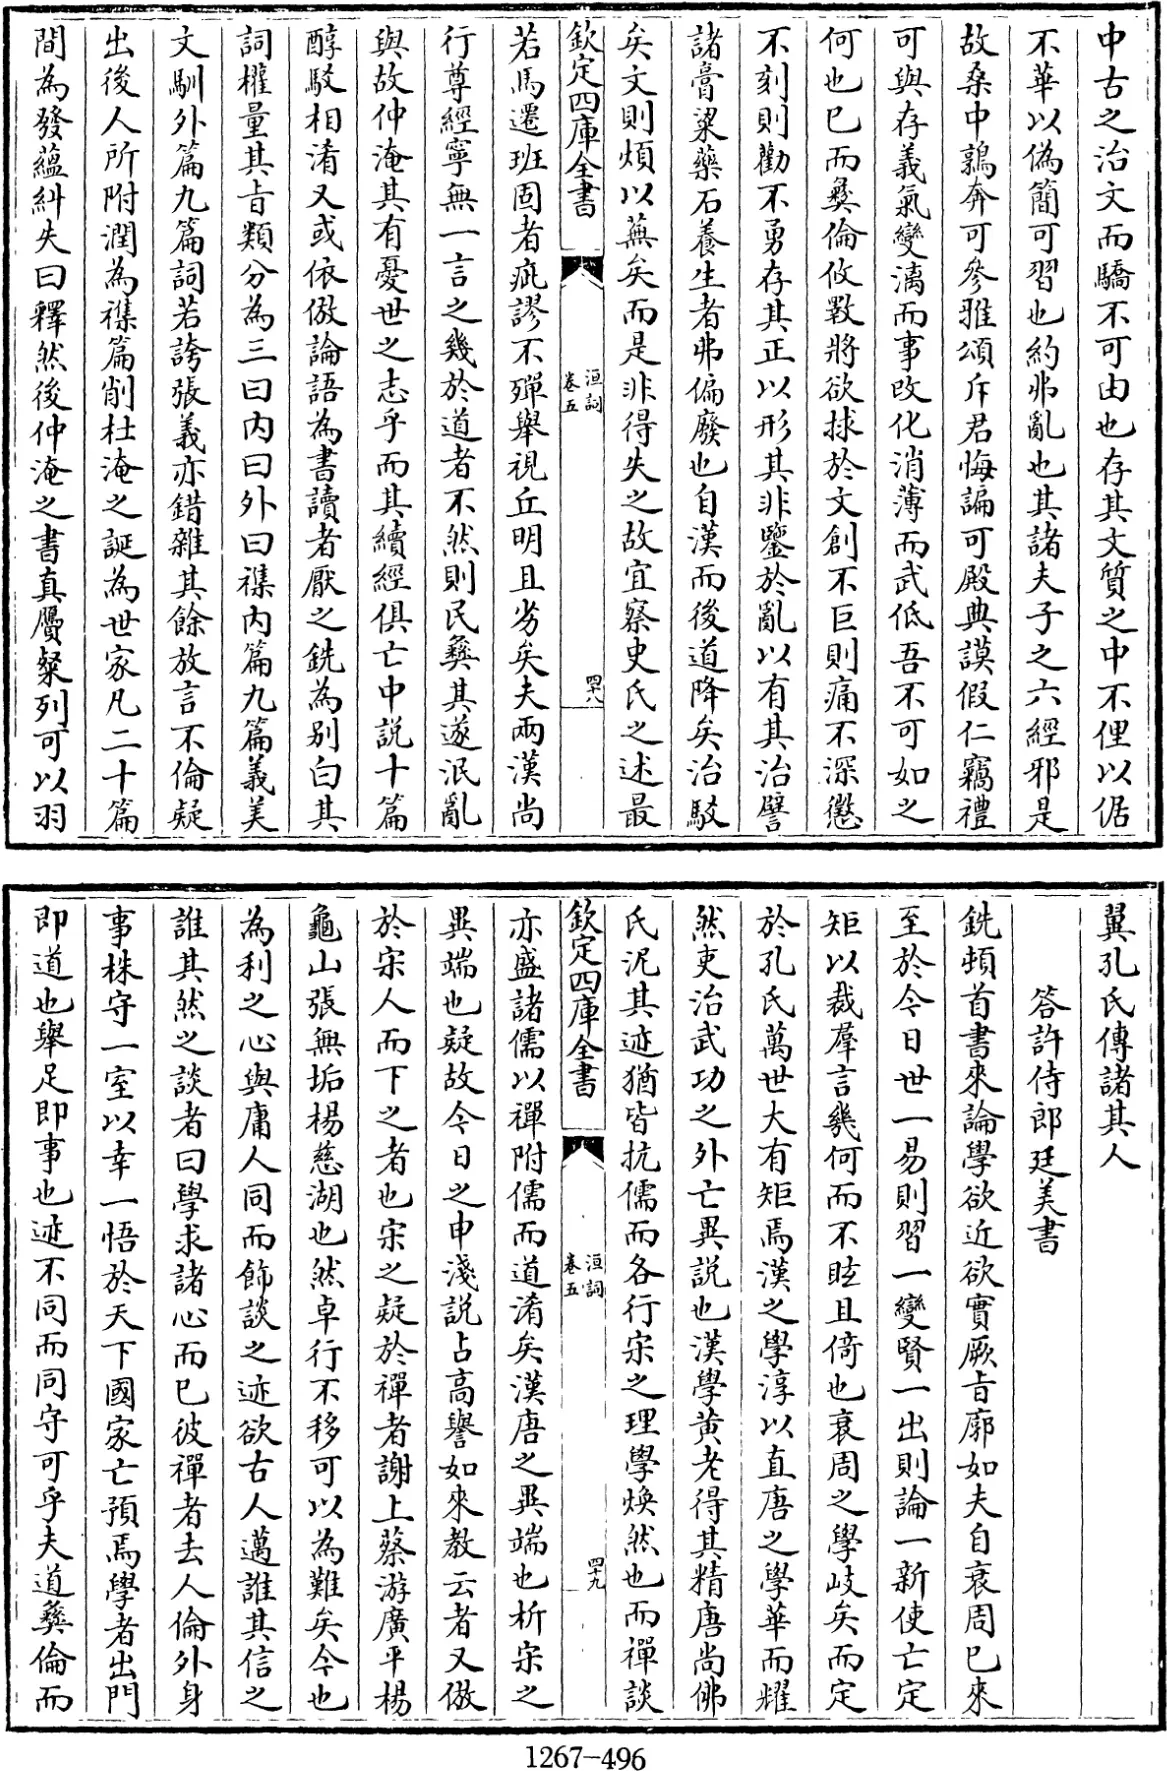 中古之治文而驕不可由也存其文質之中不俚以倨
不華以偽簡可習也約弗亂也其諸夫子之六經邪是
故桑中鶉奔可參雅頌斥君悔謫可殿典謨假仁竊禮
可與存義氣變漓而事改化消薄而武低吾不可如之
何也已而彜倫攸斁將欲捄於文創不巨則痛不深懲
不刻則勸不勇存其正以形其非鑒於亂以有其治譬
諸膏粱藥石養生者弗偏廢也自漢而後道降矣治駁
矣文則煩以蕪矣而是非得失之故宜察史氏之述最
欽定四庫全書
洹詞
卷五
四十八
若馬遷班固者疵謬不殫舉視丘明且劣矣夫兩漢尚
行尊經寧無一言之幾於道者不然則民彜其遂泯亂
與故仲淹其有憂世之志乎而其續經俱亡中說十篇
醇駁相淆又或依倣論語為書讀者厭之銑為别白其
詞權量其旨類分為三曰内曰外曰襍内篇九篇義美
文馴外篇九篇詞若誇張義亦錯雜其餘放言不倫疑
出後人所附潤為襍篇削杜淹之誕為世家凡二十篇
間為發蘊糾失曰釋然後仲淹之書真贋粲列可以羽
翼孔氏傳諸其人
答許侍郎廷美書
銑頓首書來論學欲近欲實厥旨廓如夫自衰周已來
至於今日世一易則習一變賢一出則論一新使亡定
矩以裁羣言幾何而不眩且倚也衰周之學岐矣而定
於孔氏萬世大有矩焉漢之學淳以直唐之學華而耀
然吏治武功之外亡異說也漢學黄老得其精唐尚佛
氏泥其迹猶皆抗儒而各行宋之理學煥然也而禪談
欽定四庫全書
洹詞
卷五
四十九
亦盛諸儒以禪附儒而道淆矣漢唐之異端也析宋之
異端也疑故今日之申淺說占高譽如來教云者又倣
於宋人而下之者也宋之疑於禪者謝上蔡游廣平楊
龜山張無垢楊慈湖也然卓行不移可以為難矣今也
為利之心與庸人同而飾談之迹欲古人邁誰其信之
誰其然之談者曰學求諸心而已彼禪者去人倫外身
事株守一室以幸一悟於天下國家亡預焉學者出門
即道也舉足即事也迹不同而同守可乎夫道彜倫而
1267-496